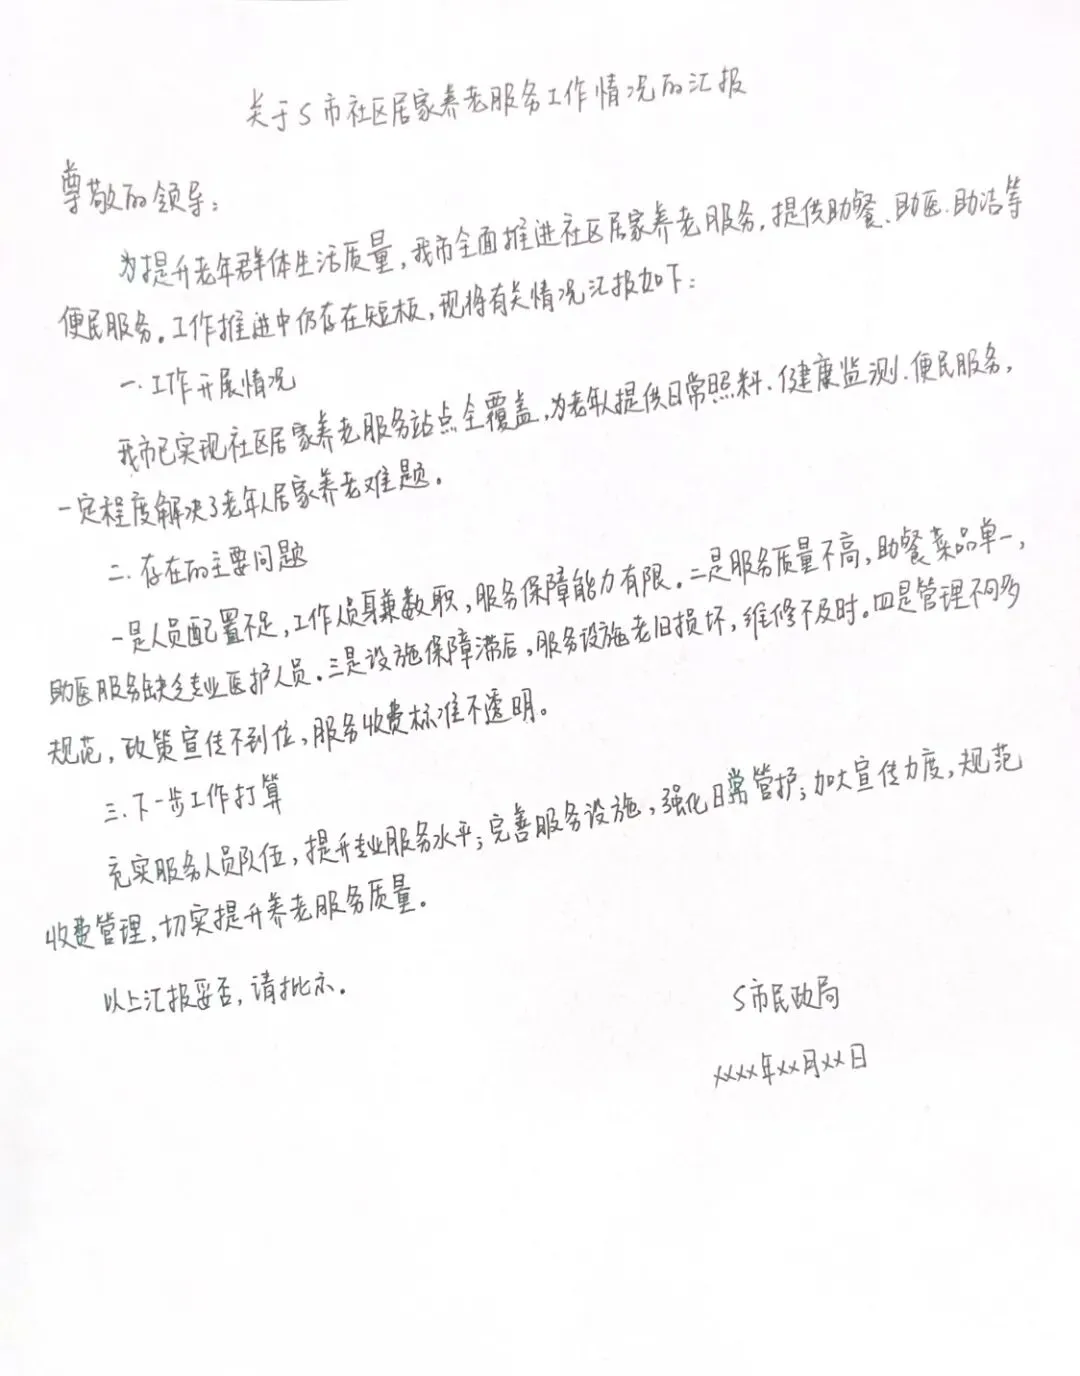 关于S市社区居家养老服务工作情况的汇报
尊敬的领导：
为提升老年群体生活质量，我市全面推进社区居家养老服务，提供助餐、助医、助洁等
便民服务。工作推进中仍存在短板，现将有关情况汇报如下：
一.工作开展情况
我市已实现社区居家养老服务站点全覆盖，为老年人提供日常照料、健康监测、便民服务，
一定程度解决了老年人居家养老难题。
二.存在的主要问题
一是人员配置不足，工作人员身兼数职，服务保障能力有限。二是服务质量不高，助餐菜品单一，
助医服务缺乏专业医护人员。三是设施保障滞后，服务设施老旧损坏，维修不及时。四是管理不够
规范，政策宣传不到位，服务收费标准不透明。
三.下一步工作打算
充实服务人员队伍，提升专业服务水平；完善服务设施，强化日常管护；加大宣传力度，规范
收费管理，切实提升养老服务质量。
以上汇报妥否，请批示。
S市民政局
xxxx年xx月xx日